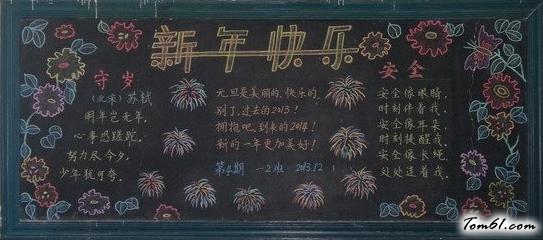 新年快乐
守岁
(北宋)苏轼
明年岂无年,
心事恐蹉跎,
努力尽今夕,
少年犹可夸.
元旦是美丽的、快乐的,
别了,过去的2013!
拥抱吧,到来的2014!
新的一年更加美好!
第4期 一2班 2013.12
安全
安全像眼睛,
时刻伴着我,
安全像耳朵,
时刻提醒我,
安全像长绳,
处处连着我.
Tom61.com